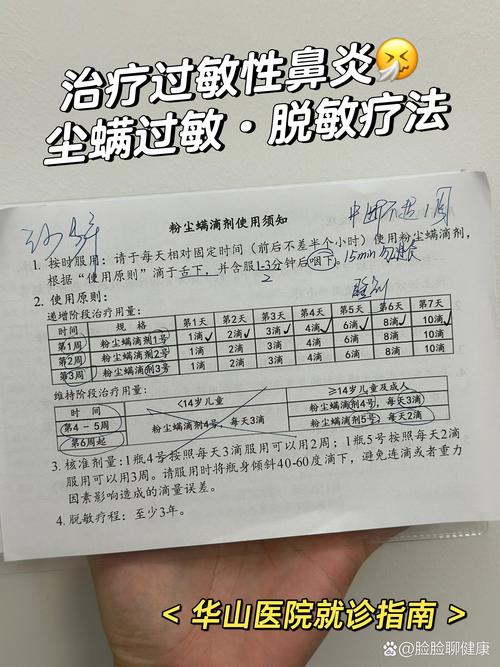 治疗过敏性鼻炎🤧
尘螨过敏·脱敏疗法
中断不超1周
粉尘螨滴剂使用须知
1. 按时服用：请于每天相对固定时间（前后不差半个小时）使用粉尘螨滴剂，
根据“使用原则”滴于舌下，并含服1-3分钟后咽下。15min勿进食
2
睡前
2. 使用原则：
递增阶段治疗用量：
时间 规格 第1天 第2天 第3天 第4天 第5天 第6天 第7天
第1周 粉尘螨滴剂1号 1滴 2滴 3滴 4滴 6滴 8滴 10滴
第2周 粉尘螨滴剂2号 1滴 2滴 3滴 4滴 6滴 8滴 10滴
第3周 粉尘螨滴剂3号 1滴 2滴 3滴 4滴 6滴 8滴 10滴
维持阶段治疗用量：
时间 <14岁儿童 ≥14岁儿童及成人
第4-5周 粉尘螨滴剂4号，每天3滴 粉尘螨滴剂4号，每天3滴
第6周起 粉尘螨滴剂5号，每天2滴
3. 核准剂量：1瓶4号按照每天3滴服用可以用2周；1瓶5号按照每天2滴
服用可以用3周。请服用时将瓶身倾斜40-60度滴下，避免连滴或者重力
因素影响造成的滴量误差。
4. 脱敏疗程：至少3年。
< 华山医院就诊指南 >
@脸脸聊健康